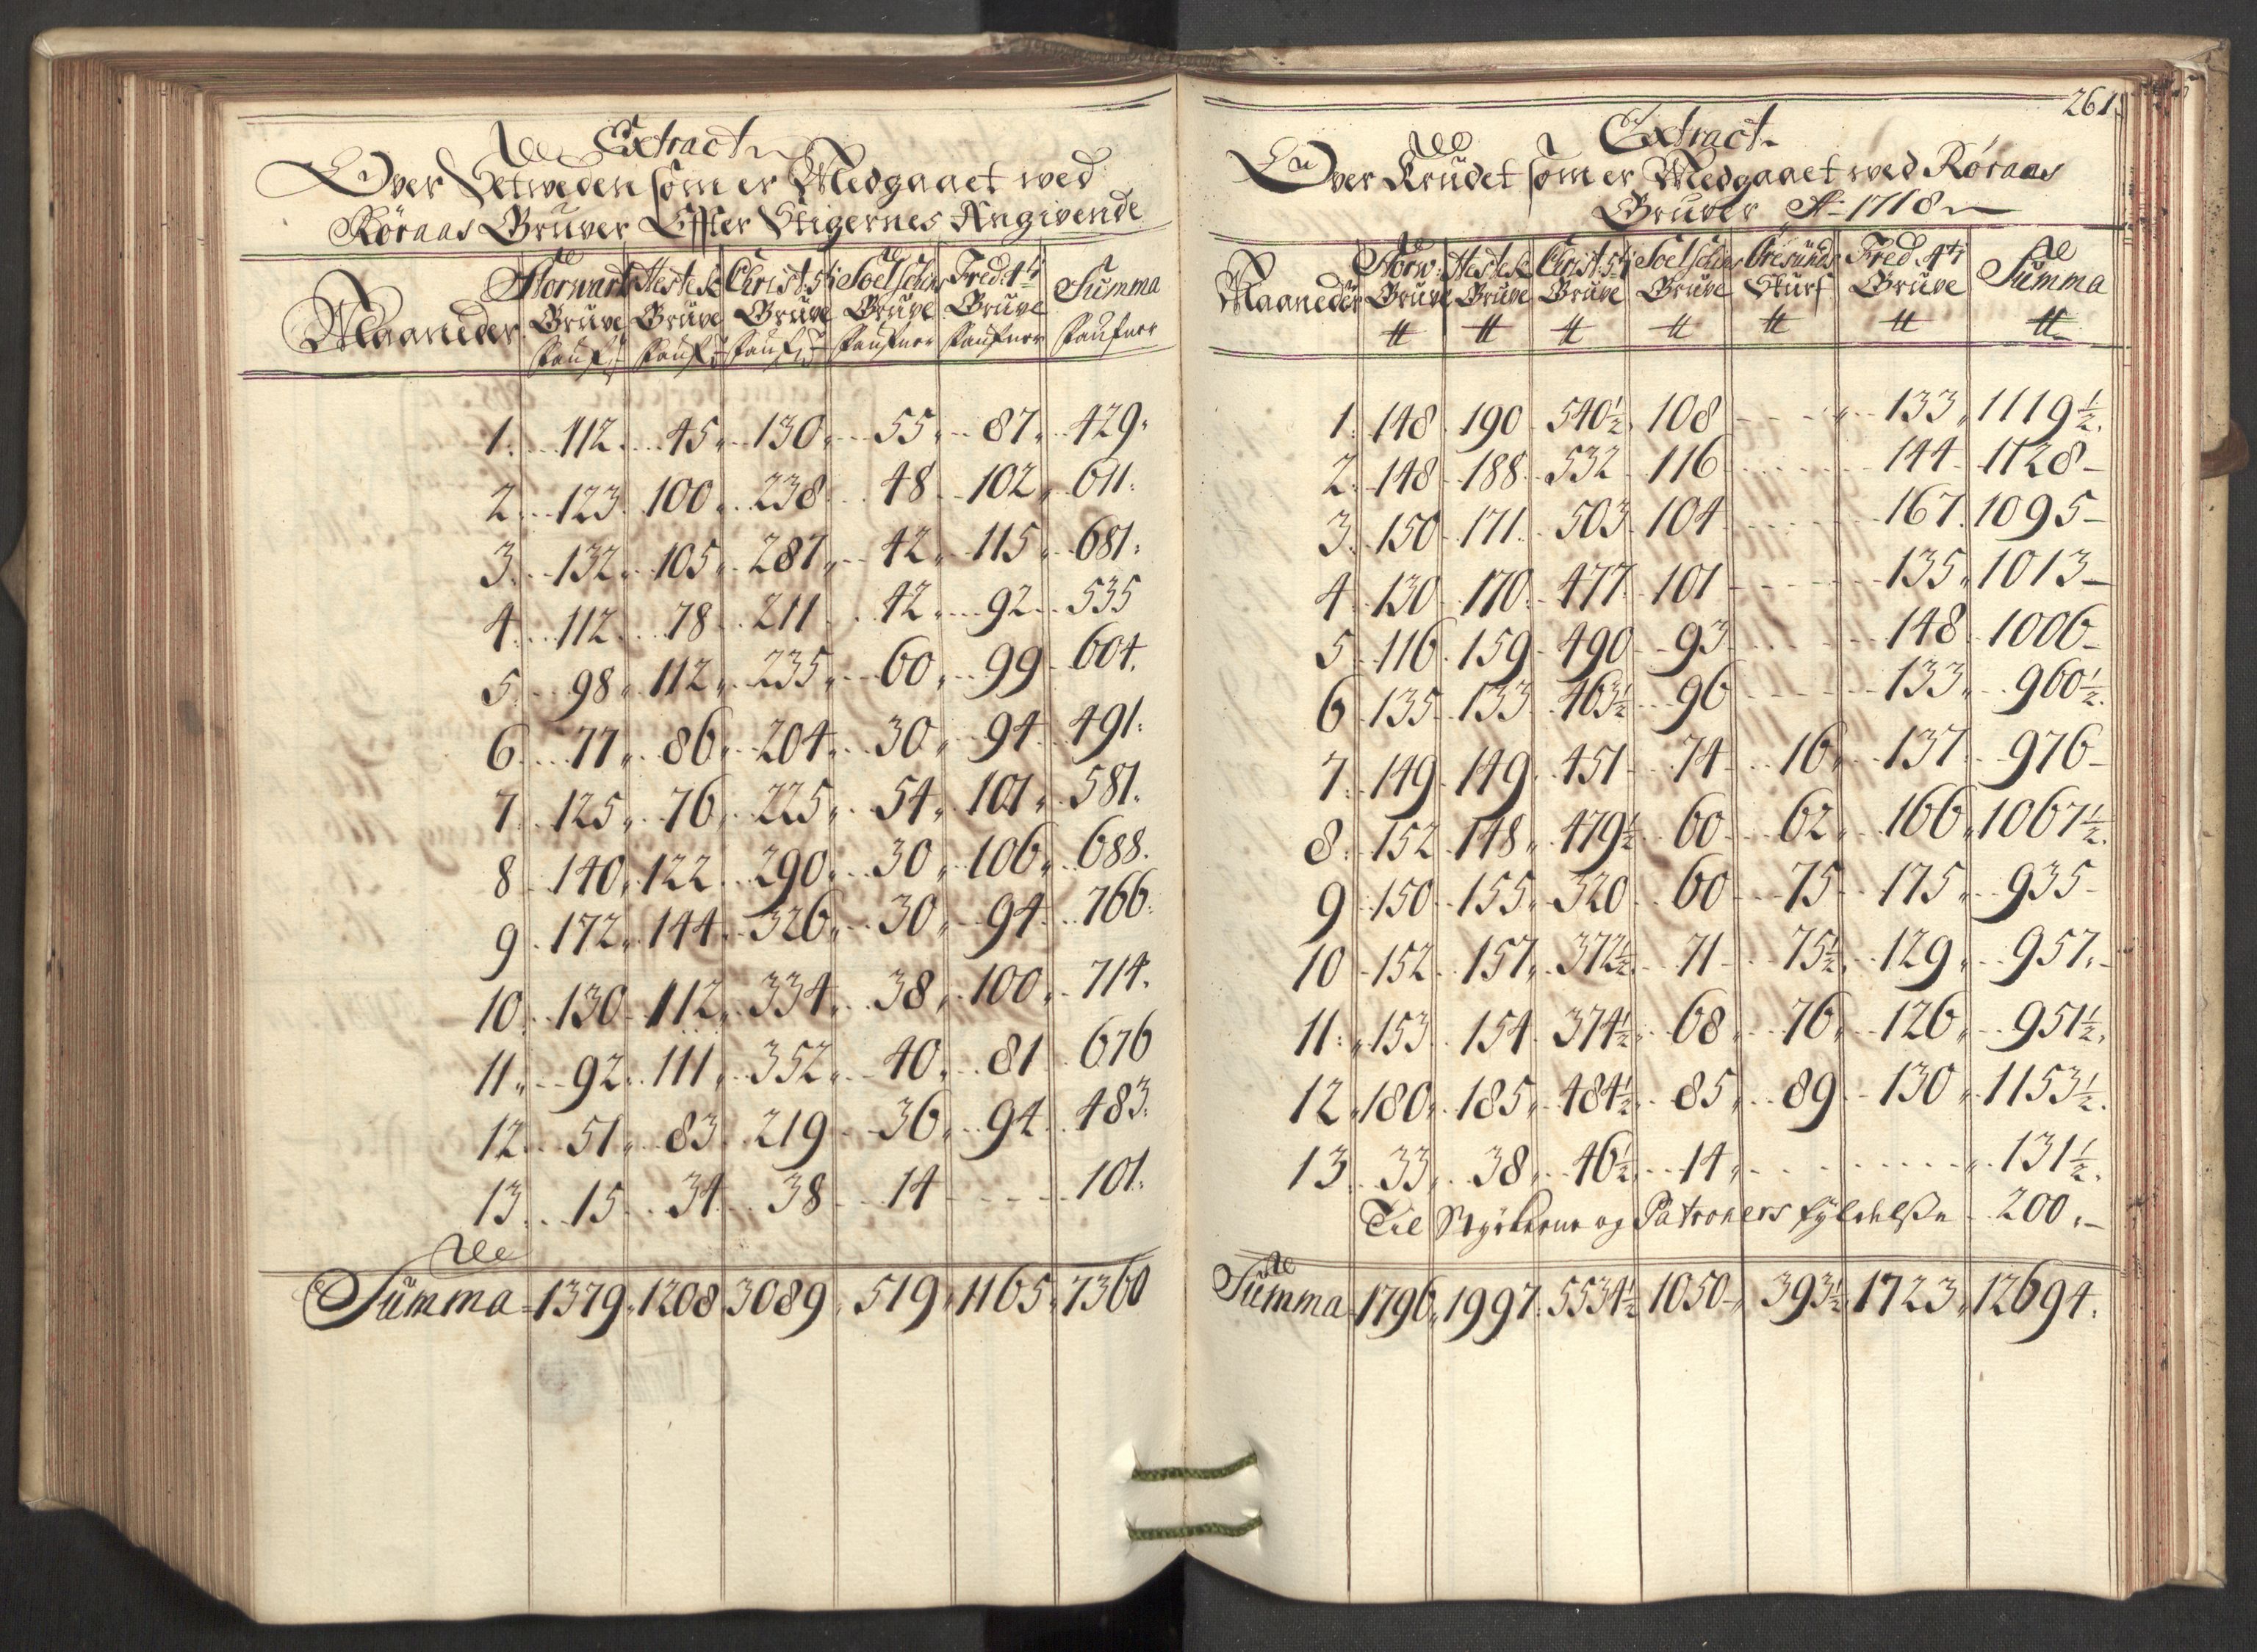 Extract
Over Setweden som er Medgaaet wed
Röraas Gruver Effter Stigernes Angivende
Maaneder Storwart Hestek Christ: 5ti Soelschins Fred: 4ti Summa
Gruve Gruve Gruve Gruve Gruve
1. 112. 45. 130. 55. 87. 429.
2. 123. 100. 238. 48. 102. 611.
3. 132. 105. 287. 42. 115. 681.
4. 112. 78. 211. 42. 92. 535
5. 98. 112. 235. 60. 99. 604.
6. 77. 86. 204. 30. 94. 491.
7. 125. 76. 225. 54. 101. 581.
8. 140. 122. 290. 30. 106. 688.
9. 172. 144. 326. 30. 94. 766.
10. 130. 112. 334. 38. 100. 714.
11. 92. 111. 352. 40. 81. 676
12. 51. 83. 219. 36. 94. 483.
13. 15. 34. 38. 14 - - - 101.
Summa 1379. 1208. 3089. 519. 1165. 7360
261.
Extract
Over Krudet som er Medgaaet wed Röraas
Gruver Ao 1718
Maaneder Storw: Hestek Christ: 5ti Soelschins Öresunds Fred: 4ti Summa
Gruve Gruve Gruve Gruve Skurf Gruve
℔ ℔ ℔ ℔ ℔ ℔ ℔
1. 148. 190. 540½. 108 - - - 133. 1119½.
2. 148. 188. 532. 116 - - - 144. 1128 -
3. 150. 171. 503. 104 - - - 167. 1095 -
4. 130. 170. 477. 101 - - - 135. 1013 -
5. 116. 159. 490. 93 - - - 148. 1006 -
6. 135. 133. 463½. 96 - - - 133. 960½.
7. 149. 149. 451. 74. 16. 137. 976 -
8. 152. 148. 479½. 60. 62. 166. 1067½.
9. 150. 155. 320. 60. 75. 175. 935 -
10. 152. 157. 372½. 71. 75½. 129. 957. -
11. 153. 154. 374½. 68. 76. 126. 951½.
12. 180. 185. 484½. 85. 89. 130. 1153½.
13. 33. 38. 46½. 14. - - - 131½.
Til Stykerne og Patroners fyldelsse 200. -
Summa 1796. 1997. 5534½. 1050. 393½. 1723. 12694.